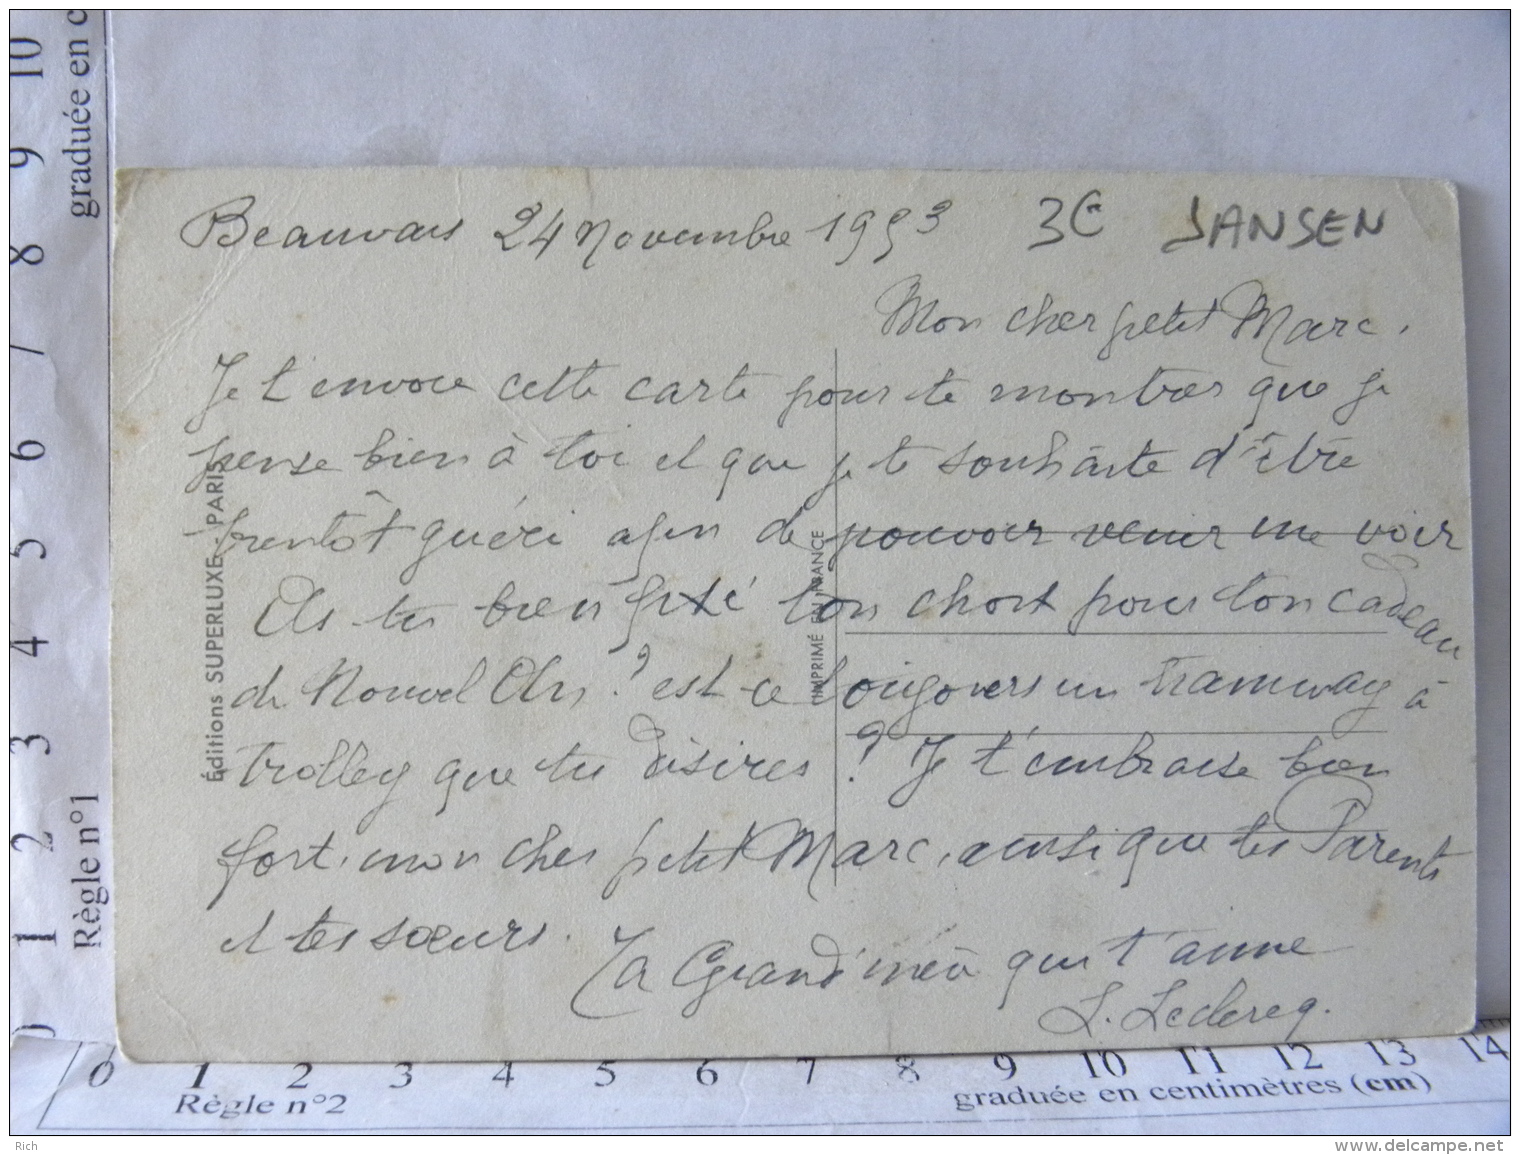 Beauvais 24 Novembre 1953
3€ JANSEN
Mon cher petit Marc.
Je t'envoie cette carte pour te montrer que je
pense bien à toi et que je te souhaite d'être
bientôt guéri afin de pouvoir venir me voir
As-tu bien fixé ton choix pour ton cadeau
de Nouvel An ? est-ce toujours un tramway à
trolley que tu désires ? Je t'embrasse bien
fort, mon cher petit Marc, ainsi que tes Parents
et tes sœurs.
Ta Grand'mère qui t'aime
L. Leclercq.
Éditions SUPERLUXE - PARIS
IMPRIMÉ EN FRANCE
Règle n°1
graduée en c
1 2 3 4 5 6 7 8 9 10
0 1 2 3 4 5 6 7 8 9 10 11 12 13 14
Règle n°2
graduée en centimètres (cm)
Rich
www.delcampe.net